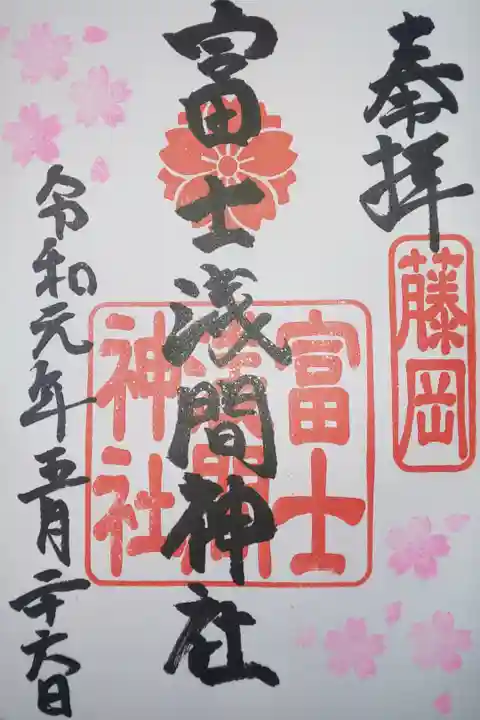 奉拝
藤岡
富士浅間神社
富士
浅間
神社
令和元年五月二十六日